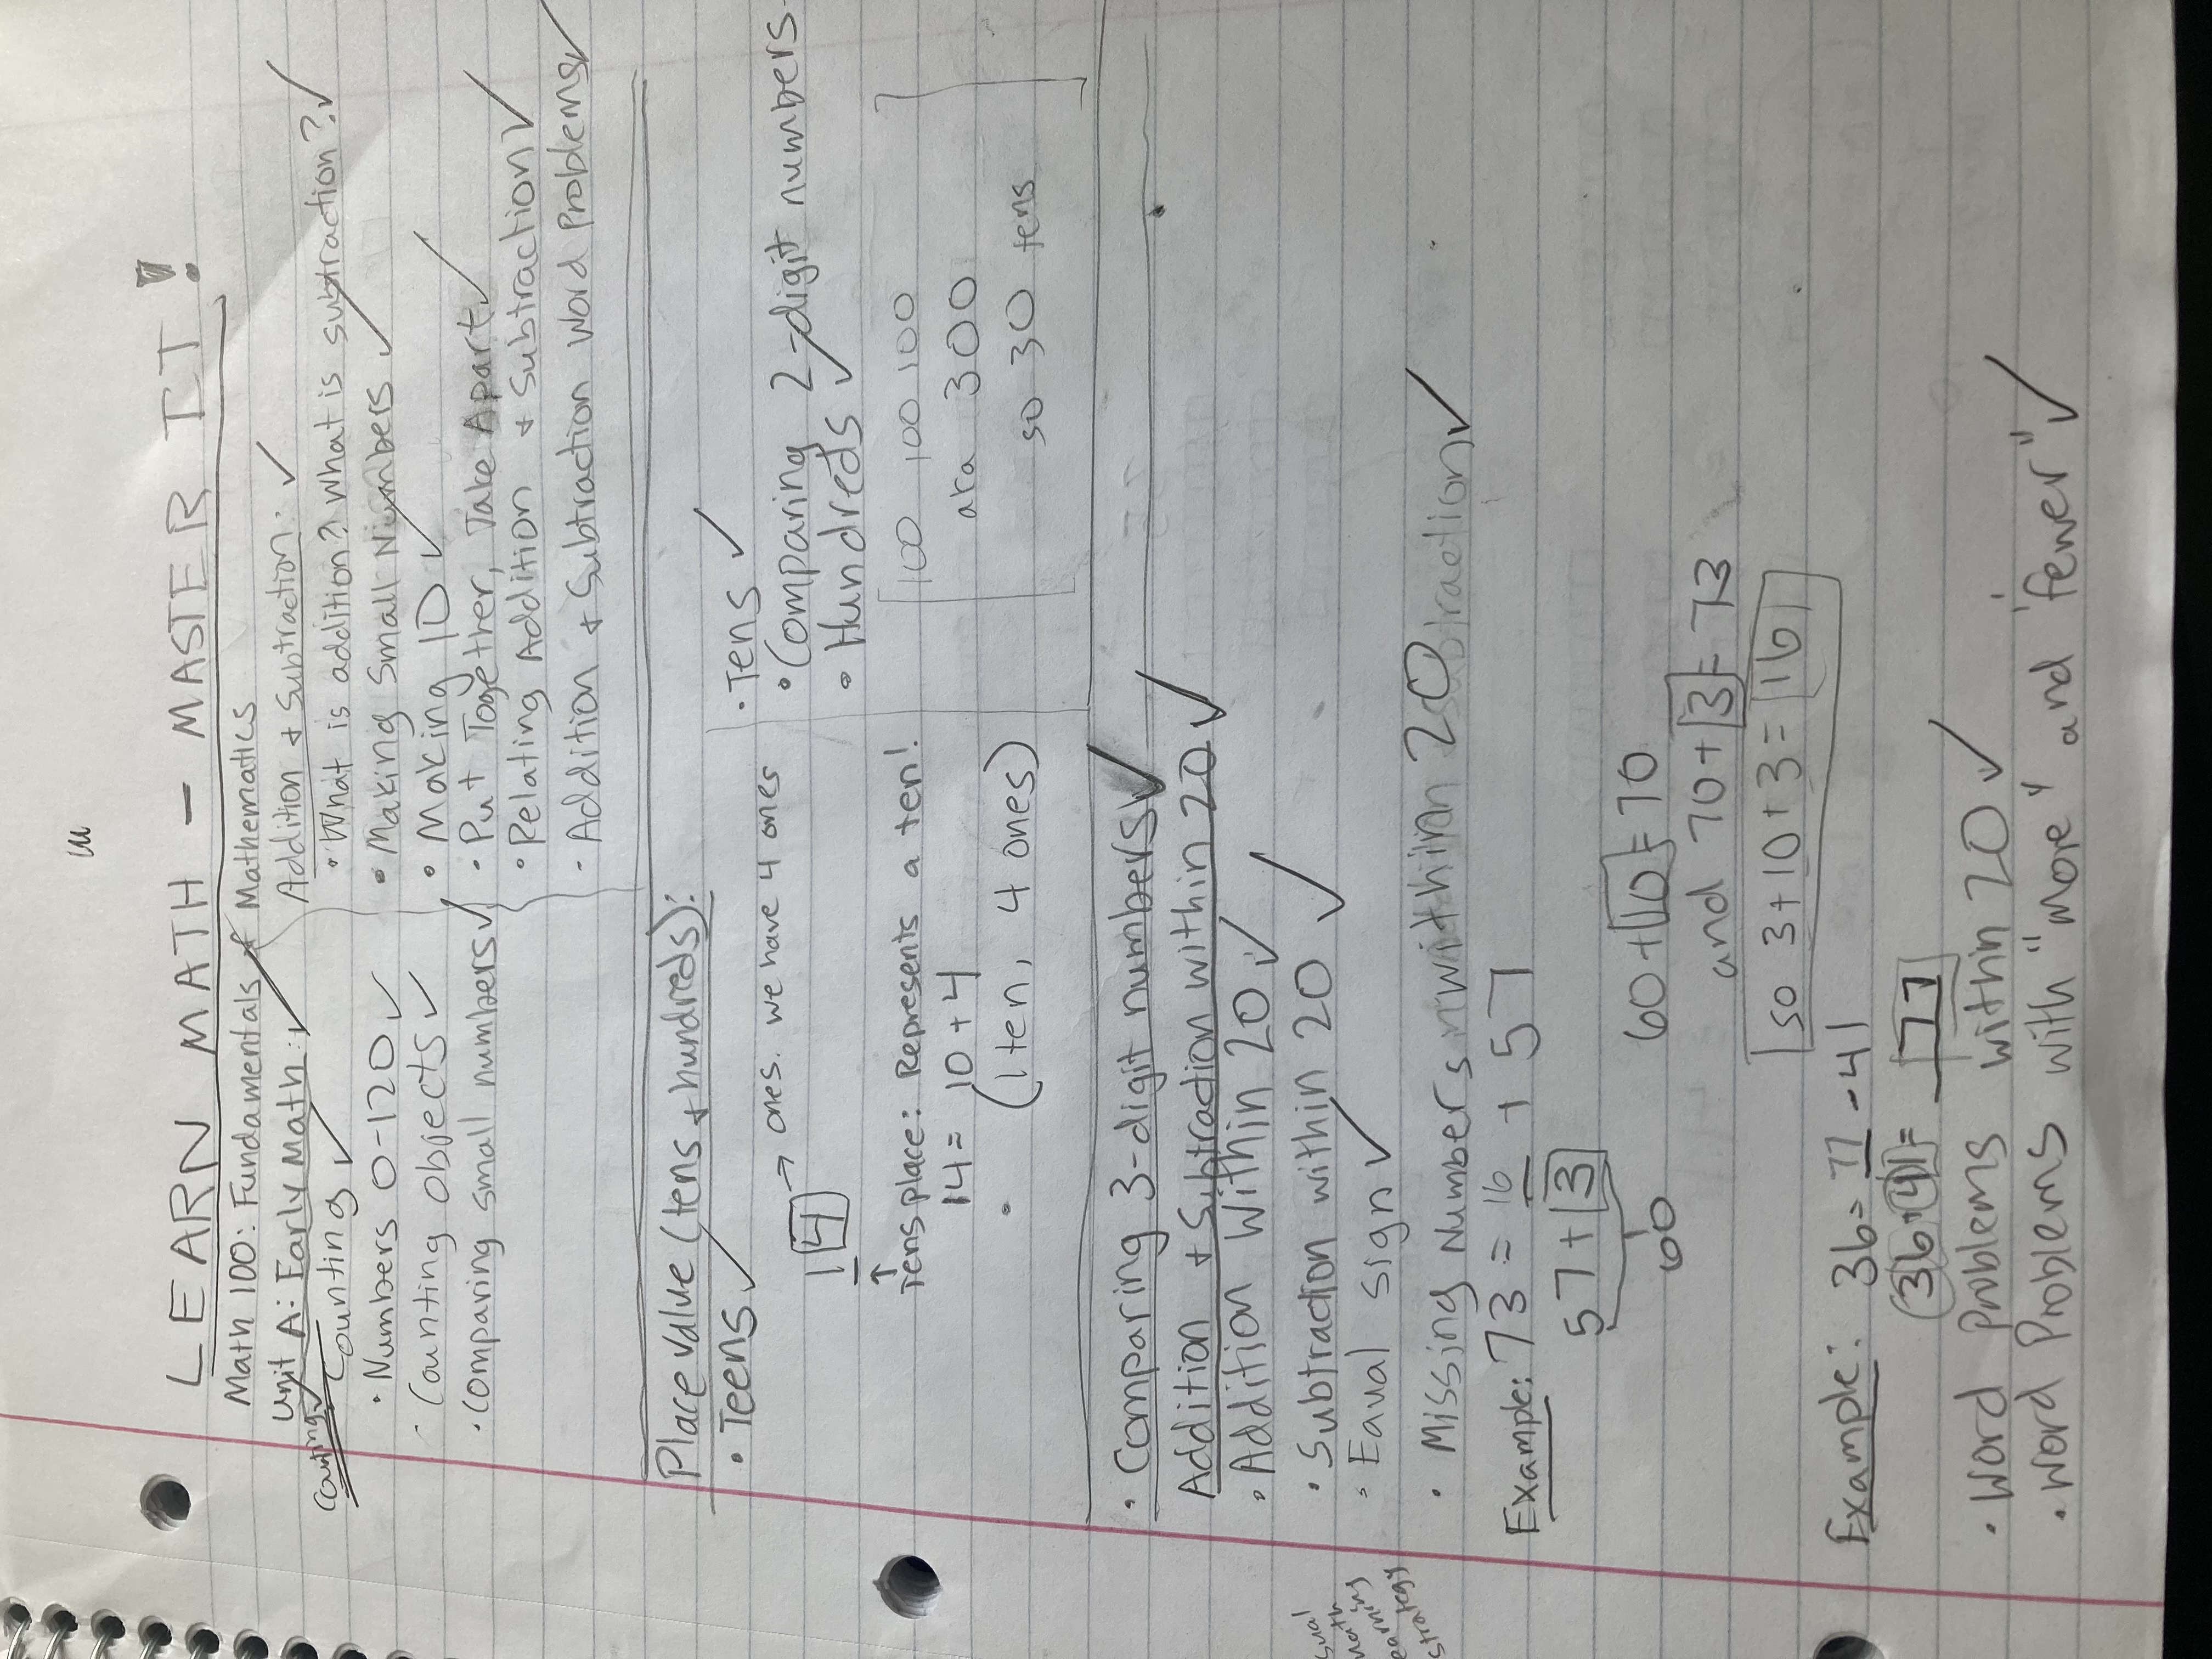 LEARN MATH – MASTER IT!
Math 100: Fundamentals of Mathematics
Unit A: Early Math: ✓
Counting ✓
Counting ✓
• Numbers 0-120 ✓
- Counting objects ✓
• Comparing small numbers ✓
Addition + Subtraction: ✓
• What is addition? What is subtraction? ✓
• Making Small Numbers ✓
• Making 10 ✓
• Put Together, Take Apart ✓
• Relating Addition + Subtraction ✓
- Addition + Subtraction Word Problems ✓
Place Value (tens + hundreds):
• Teens ✓
14 → ones. we have 4 ones
↑
Tens place: Represents a ten!
14 = 10 + 4
• (1 ten, 4 ones)
• Tens ✓
• Comparing 2-digit numbers
• Hundreds ✓
100 100 100
aka 300
so 30 tens
• Comparing 3-digit numbers ✓
Addition + Subtraction within 20 ✓
• Addition Within 20 ✓
• Subtraction within 20 ✓
• Equal sign ✓
sual
math
earning
strategy
• Missing Numbers within 20 ✓
Example: 73 = 16 + 57
57 + 3
60
60 + 10 = 70
and 70 + 3 = 73
so 3 + 10 + 3 = 16
Example: 36 = 77 - 41
36 + 41 = 77
• Word Problems within 20 ✓
• Word Problems with "more" and "fewer" ✓